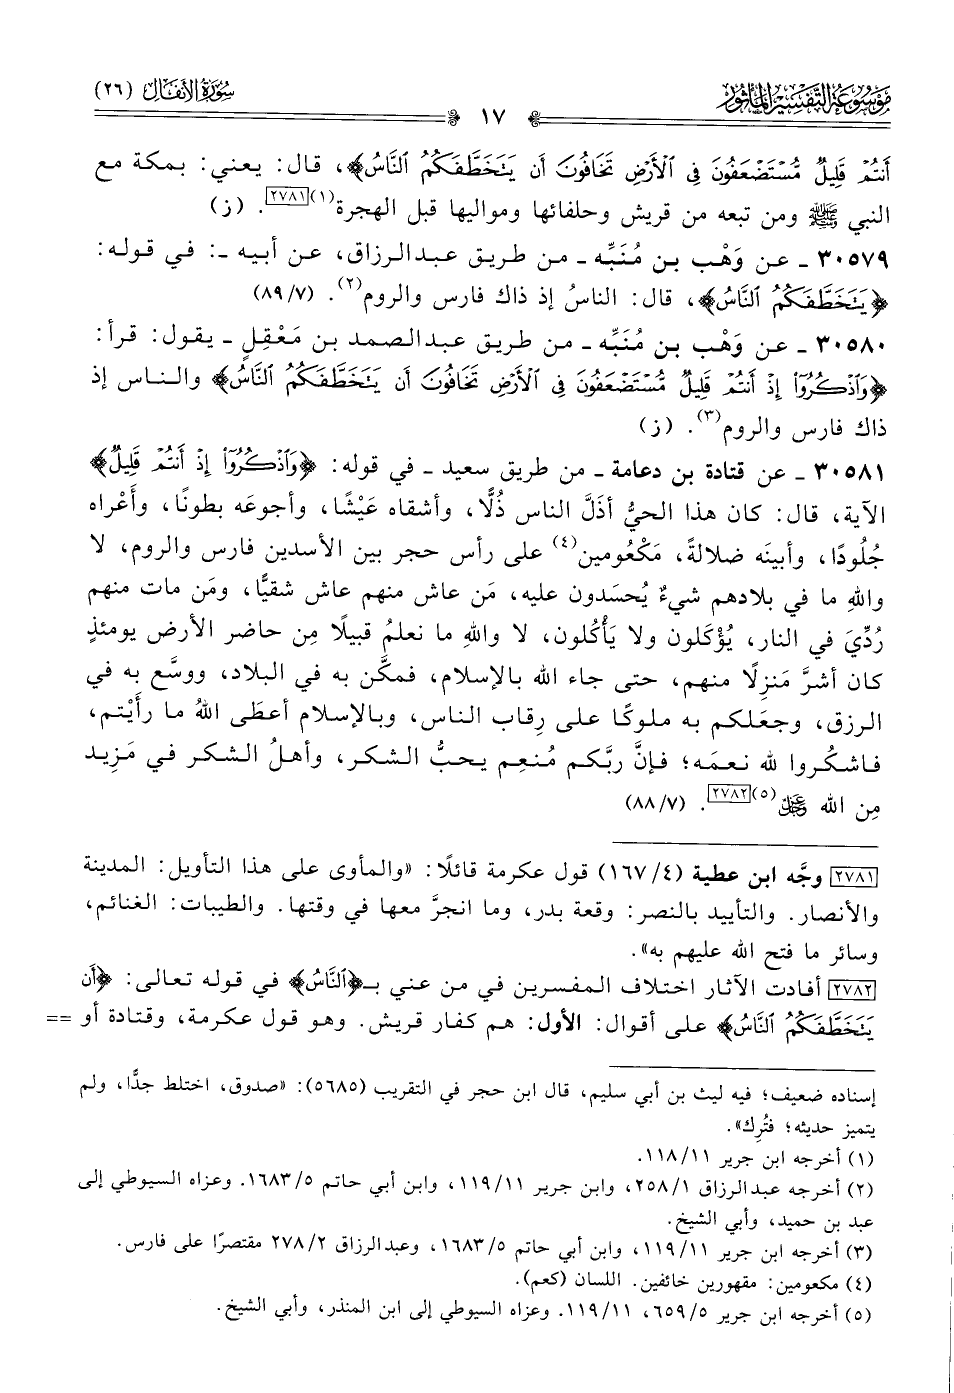 موسوعة التفسير المأثور
١٧
سورة الأنفال (٢٦)
أَنتُمْ قَلِيلٌ مُّسْتَضْعَفُونَ فِى ٱلْأَرْضِ تَخَافُونَ أَن يَتَخَطَّفَكُمُ ٱلنَّاسُ﴾، قال: يعني: بمكة مع
النبي ﷺ ومن تبعه من قريش وحلفائها ومواليها قبل الهجرة(١)[٢٧٨١]. (ز)
٣٠٥٧٩ ـ عن وَهْب بن مُنَبِّه ـ من طريق عبدالرزاق، عن أبيه ـ: في قوله:
﴿يَتَخَطَّفَكُمُ ٱلنَّاسُ﴾، قال: الناسُ إذ ذاك فارس والروم(٢). (٨٩/٧)
٣٠٥٨٠ ـ عن وَهْب بن مُنَبِّه ـ من طريق عبدالصمد بن مَعْقِل ـ يقول: قرأ:
﴿وَٱذْكُرُوٓا۟ إِذْ أَنتُمْ قَلِيلٌ مُّسْتَضْعَفُونَ فِى ٱلْأَرْضِ تَخَافُونَ أَن يَتَخَطَّفَكُمُ ٱلنَّاسُ﴾ والناس إذ
ذاك فارس والروم(٣). (ز)
٣٠٥٨١ ـ عن قتادة بن دعامة ـ من طريق سعيد ـ في قوله: ﴿وَٱذْكُرُوٓا۟ إِذْ أَنتُمْ قَلِيلٌ﴾
الآية، قال: كان هذا الحيُّ أذَلَّ الناس ذُلًّا، وأشقاه عَيْشًا، وأجوعَه بطونًا، وأعْراه
جُلُودًا، وأبينَه ضلالةً، مَكْعُومين(٤) على رأس حجر بين الأسدين فارس والروم، لا
واللهِ ما في بلادهم شيءٌ يُحسَدون عليه، مَن عاش منهم عاش شقيًّا، ومَن مات منهم
رُدِّيَ في النار، يُؤْكَلون ولا يَأْكُلون، لا واللهِ ما نعلمُ قبيلًا مِن حاضر الأرض يومئذٍ
كان أشرَّ مَنزِلًا منهم، حتى جاء الله بالإسلام، فمكَّن به في البلاد، ووسَّع به في
الرزق، وجعَلكم به ملوكًا على رِقاب الناس، وبالإسلام أعطَى اللهُ ما رأَيْتم،
فاشكُروا لله نعمَه؛ فإنَّ ربَّكم مُنعِم يحبُّ الشكر، وأهلُ الشكر في مَزِيد
مِن الله ﷿(٥)[٢٧٨٢]. (٨٨/٧)
[٢٧٨١] وجَّه ابن عطية (١٦٧/٤) قول عكرمة قائلًا: «والمأوى على هذا التأويل: المدينة
والأنصار. والتأييد بالنصر: وقعة بدر، وما انجرَّ معها في وقتها. والطيبات: الغنائم،
وسائر ما فتح الله عليهم به».
[٢٧٨٢] أفادت الآثار اختلاف المفسرين في من عني بـ﴿ٱلنَّاسُ﴾ في قوله تعالى: ﴿أَن
يَتَخَطَّفَكُمُ ٱلنَّاسُ﴾ على أقوال: الأول: هم كفار قريش. وهو قول عكرمة، وقتادة أو ==
إسناده ضعيف؛ فيه ليث بن أبي سليم، قال ابن حجر في التقريب (٥٦٨٥): «صدوق، اختلط جدًّا، ولم
يتميز حديثه؛ فتُرِك».
(١) أخرجه ابن جرير ١١/ ١١٨.
(٢) أخرجه عبدالرزاق ١/ ٢٥٨، وابن جرير ١١/ ١١٩، وابن أبي حاتم ٥/ ١٦٨٣. وعزاه السيوطي إلى
عبد بن حميد، وأبي الشيخ.
(٣) أخرجه ابن جرير ١١/ ١١٩، وابن أبي حاتم ٥/ ١٦٨٣، وعبدالرزاق ٢/ ٢٧٨ مقتصرًا على فارس.
(٤) مكعومين: مقهورين خائفين. اللسان (كعم).
(٥) أخرجه ابن جرير ٥/ ٦٥٩، ١١/ ١١٩. وعزاه السيوطي إلى ابن المنذر، وأبي الشيخ.